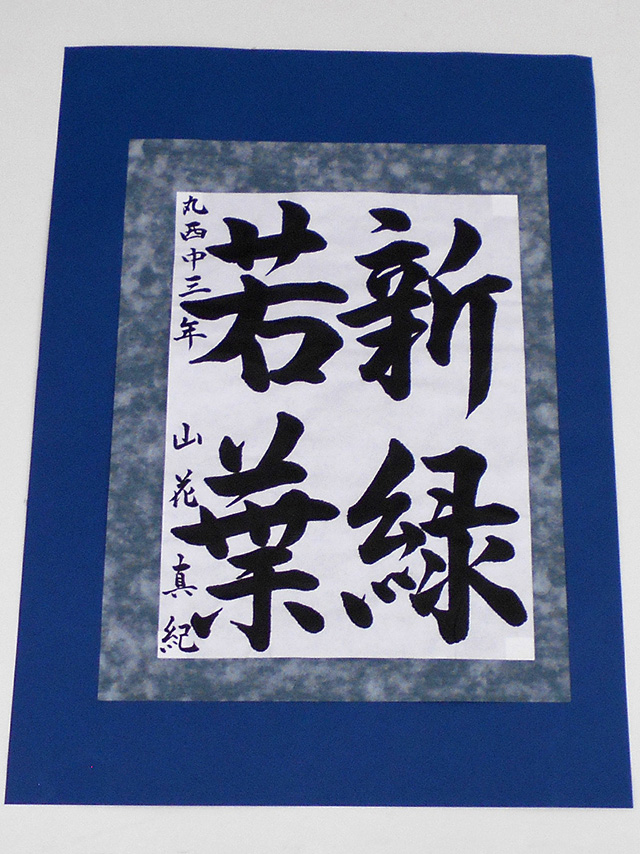 新緑
若葉
丸西中三年 山花真紀